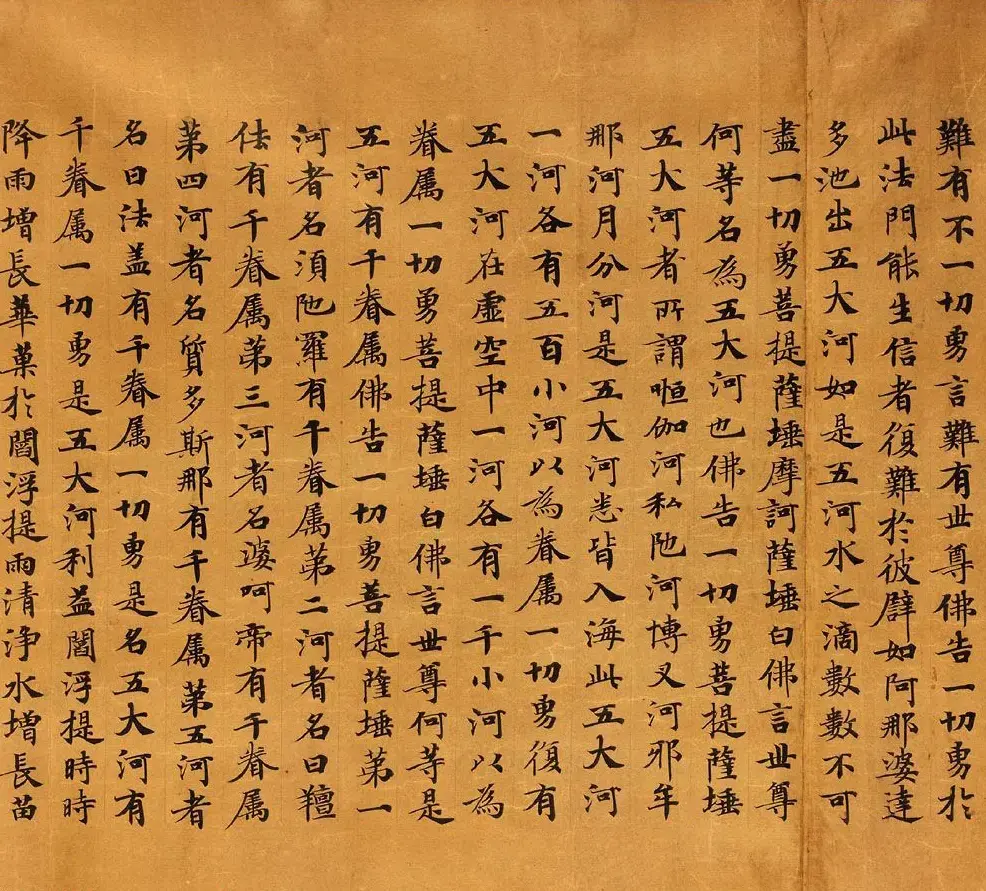 難有不一切勇言難有世尊佛告一切勇於
此法門能生信者復難於彼辟如阿那婆達
多池出五大河如是五河水之滴數數不可
盡一切勇菩提薩埵摩訶薩埵白佛言世尊
何等名為五大河也佛告一切勇菩提薩埵
五大河者所謂恒伽河私陁河博叉河耶牟
那河月分河是五大河悉皆入海此五大河
一河各有五百小河以為眷属一切勇復有
五大河在虛空中一河各有一千小河以為
眷属一切勇菩提薩埵白佛言世尊何等是
五河有千眷属佛告一切勇菩提薩埵第一
河者名湏陁羅有千眷属第二河者名曰羶
佉有千眷属第三河者名婆呵帝有千眷属
第四河者名質多斯那有千眷属第五河者
名曰法盖有千眷属一切勇是名五大河有
千眷属一切勇是五大河利益閻浮提時時
降雨增長華菓於閻浮提雨清淨水增長苗